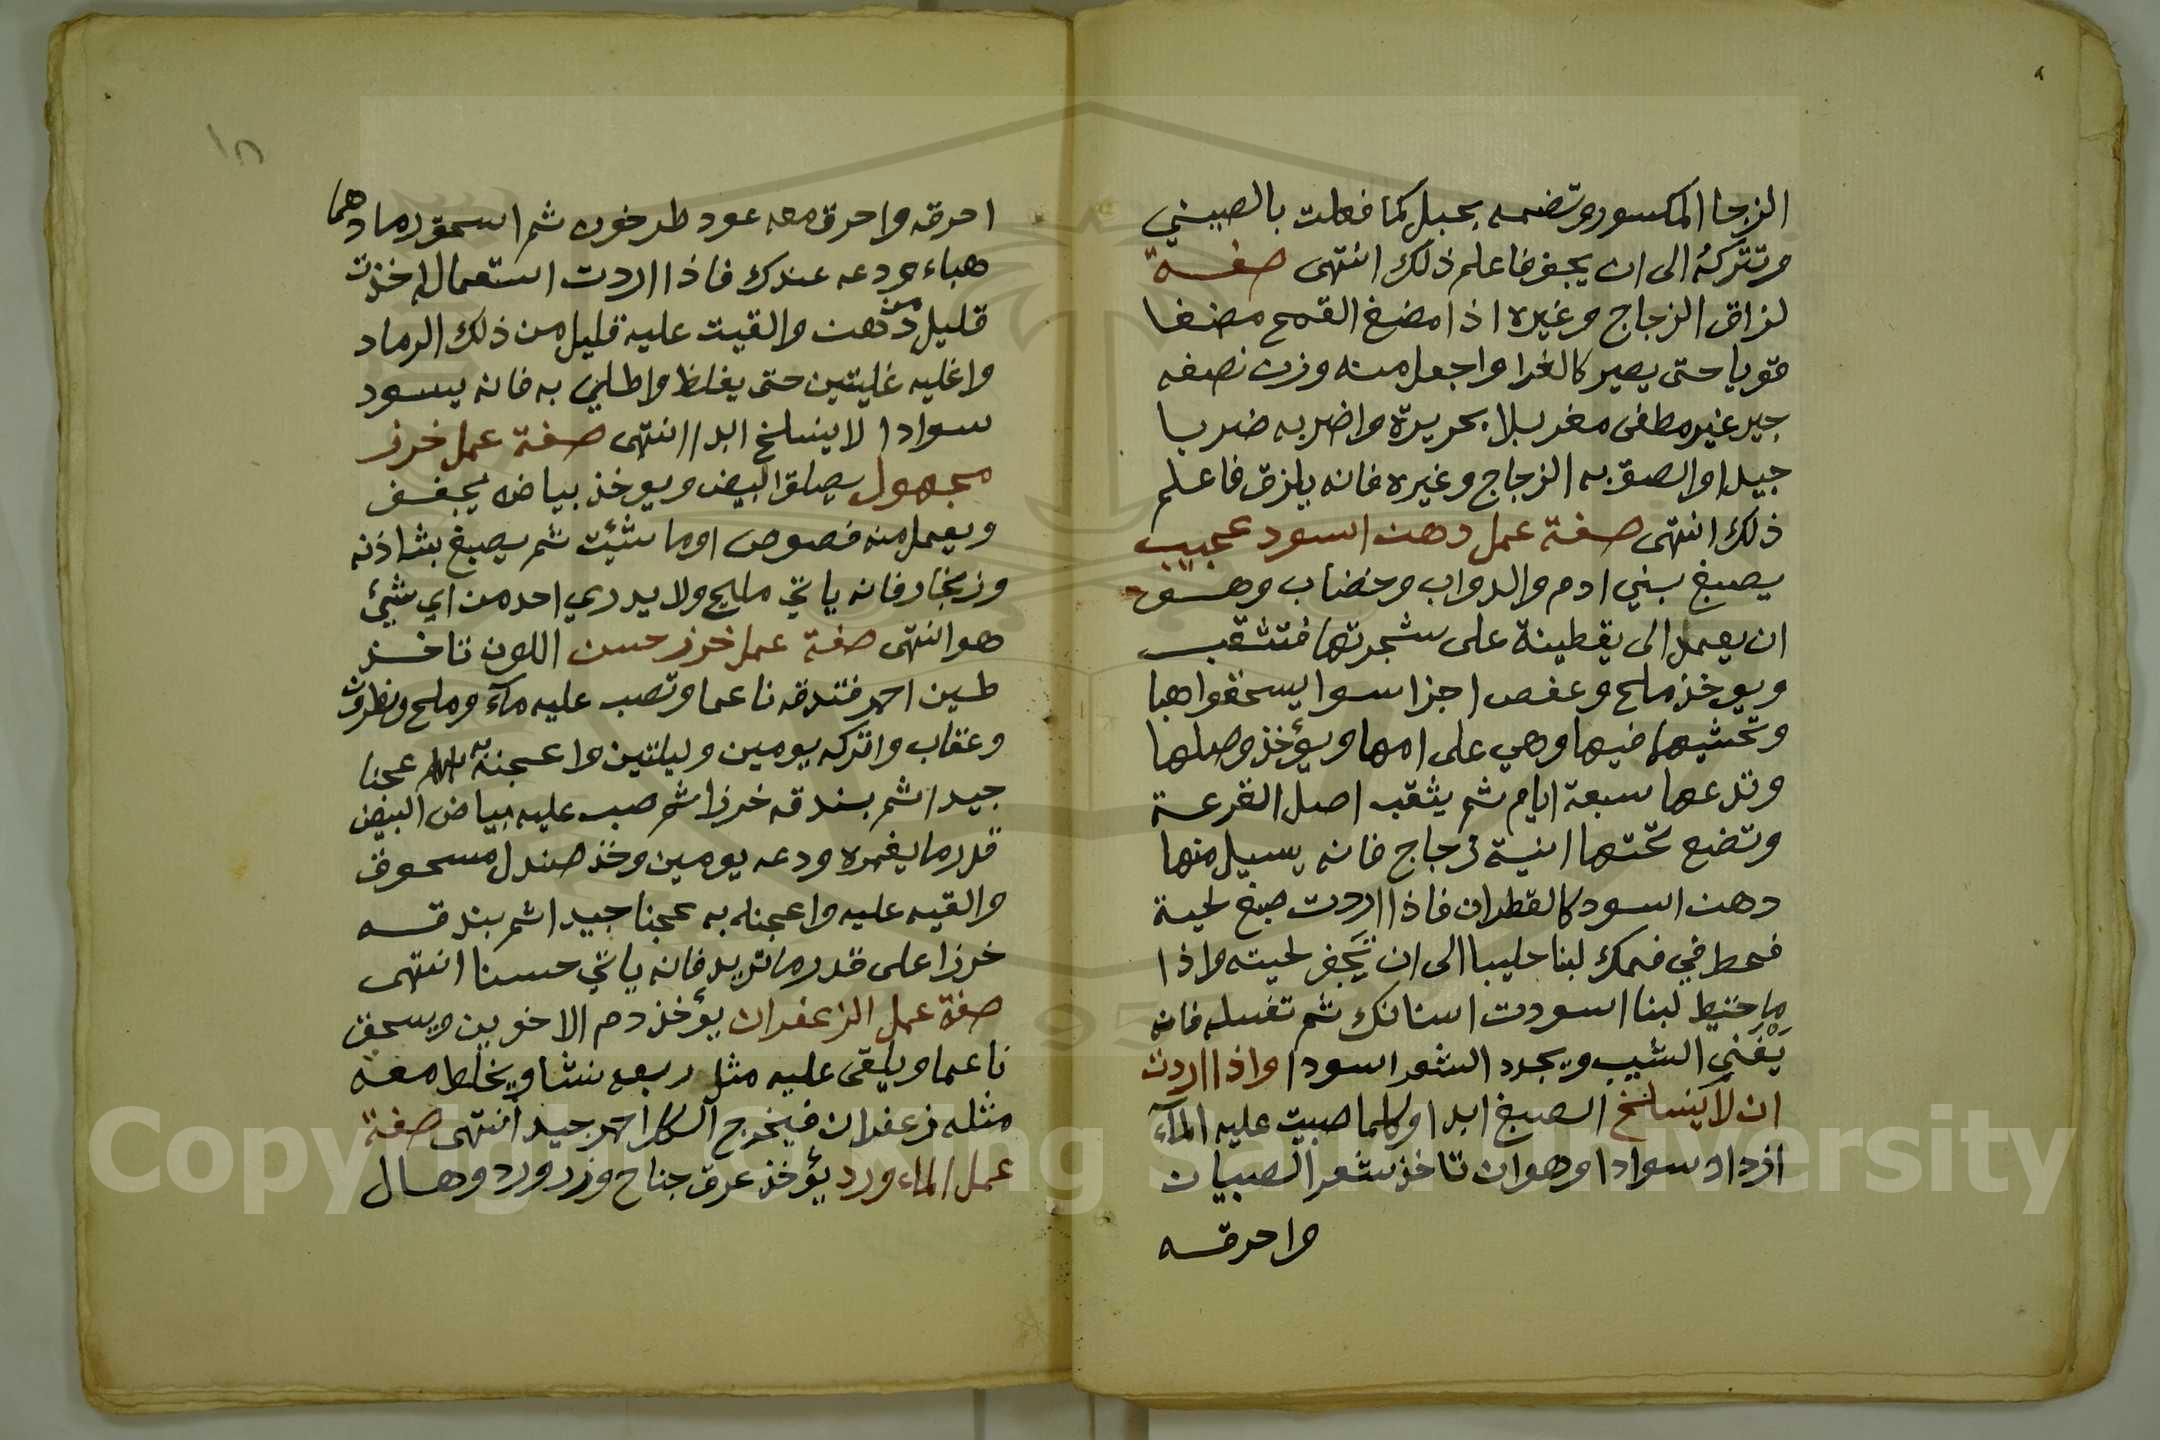 الزجا المكسور وتضمه بحبل كما فعلت بالصيني
وتتركه الى ان يجف فاعلم ذلك انتهى صفة
لزاق الزجاج وغيره اذا مضغ القمح مضغا
قويا حتى يصير كالغرا واجعل منه وزن نصفه
جير غير مطفى مغربلا بحريرة واضربه ضربا
جيدا والصق به الزجاج وغيره فانه يلزق فاعلم
ذلك انتهى صفة عمل دهن اسود عجيب
يصبغ بني ادم والدواب وخضاب وهو
ان يعمل الى يقطينة على شجرتها فتثقب
ويوخذ ملح وعفص اجزا سوا يسحقوا هبا
وتحشيها فيها وهي على امها ويؤخذ وصلها
وتدعها سبعة ايام ثم يثقب اصل القرعة
وتضع تحتها انية زجاج فانه يسيل منها
دهن اسود كالقطران فاذا اردت صبغ لحية
فحط في فمك لبنا حليبا الى ان تجف لحيته واذا
ما حتيط لبنا اسودت اسنانك ثم تغسله فانه
يفني الشيب ويجدد الشعر اسودا واذا اردت
ان لا ينسلخ الصبغ ابدا وكلما صبيت عليه المآء
ازداد سوادا وهو ان تاخذ شعر الصبيان
واحرقه
١٨
احرقه واحرق معه عود طرخون ثم اسحق رمادهما
هباء ودعه عندك فاذا اردت استعماله اخذت
قليل من دهن والقيت عليه قليل من ذلك الرماد
واغليه غليتين حتى يغلظ واطلي به فانه يسود
سوادا لا ينسلخ ابدا انتهى صفة عمل خرز
مجهول يصلق البيض ويوخذ بياضه يجفف
ويعمل منه فصوص اوما شئيت ثم يصبغ بشاذنه
وزنجار فانه ياتي مليح ولا يدري احد من اي شيئ
هو انتهى صفة عمل خرز حسن اللون تاخذ
طين احمر فتدقه ناعما وتصب عليه مآء وملح ونطرون
وعقاب واتركه يومين وليلتين واعجنه به عجنا
جيدا ثم بندقه خرزا ثم صب عليه بياض البيض
قدر ما يغمره ودعه يومين وخذ صندل مسحوق
والقيه عليه واعجنه به عجنا جيدا ثم بندقه
خرزا على قدر ما تريد فانه ياتي حسنا انتهى
صفة عمل الزعفران يؤخذ دم الاخوين ويسحق
ناعما ويلقى عليه مثل ربعه نشا ويخلط معه
مثله زعفران فيخرج الكل احمر جيد انتهى صفة
عمل الماء ورد يؤخذ عرق جناح وزر ورد وهال
Copyright © King Saud University